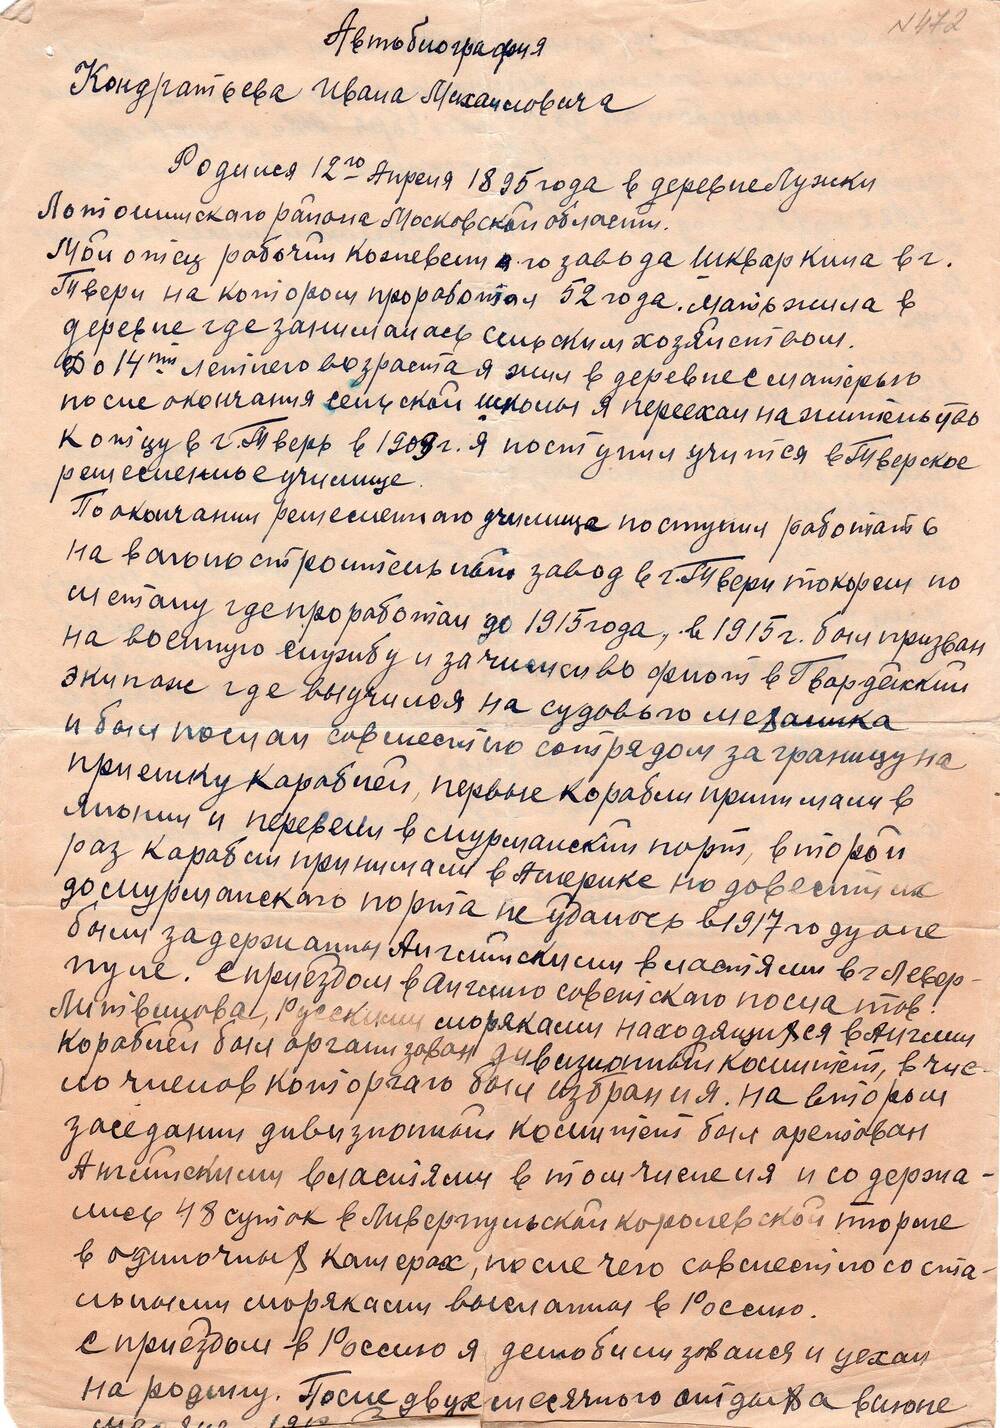 N 472
Автобиография
Кондратьева Ивана Михайловича
Родился 12го Апреля 1895 года в деревне Лужки
Лотошинскаго района Московской области.
Мой отец рабочий кожевеннаго завода Шкваркина в г.
Твери на котором проработал 52 года. Мать жила в
деревне где занималась сельским хозяйством.
До 14ти летнего возраста я жил в деревне с матерью
после окончания сельской школы я переехал на жительство
к отцу в г. Тверь в 1909 г. я поступил учится в Тверское
ремесленное училище.
По окончании ремесленного училища поступил работать
на вагоностроительный завод в г. Твери токорем по
металу где проработал до 1915 года, в 1915 г. был призван
на военную службу и зачислен во флот в Гвардейский
экипаж где выучился на судового механика
и был послан совместно с отрядом за границу на
приемку караблей, первые корабли принимали в
Японии и перевели в мурманский порт, второй
раз карабли принимали в Америке но довести их
до мурманскаго порта не удалось в 1917 году оне
были задержаны Английскими властями в г Левер-
пуле. С приездом в Англию советскаго посла тов.
Литвинова, Русскими моряками находящихся в Англии
кораблей был организован дивизионный комитет, в чис-
ло членов которгаго был избран и я. На втором
заседании дивизионный комитет был арестован
Английскими властями в том числе и я и содержа-
лись 48 суток в Ливерпульской королевской тюрме
в одиночных камерах, после чего совместно с оста-
льными моряками высланы в Россию.
С приездом в Россию я демобилизовался и уехал
на родину. После двух месячного отдыха в июне